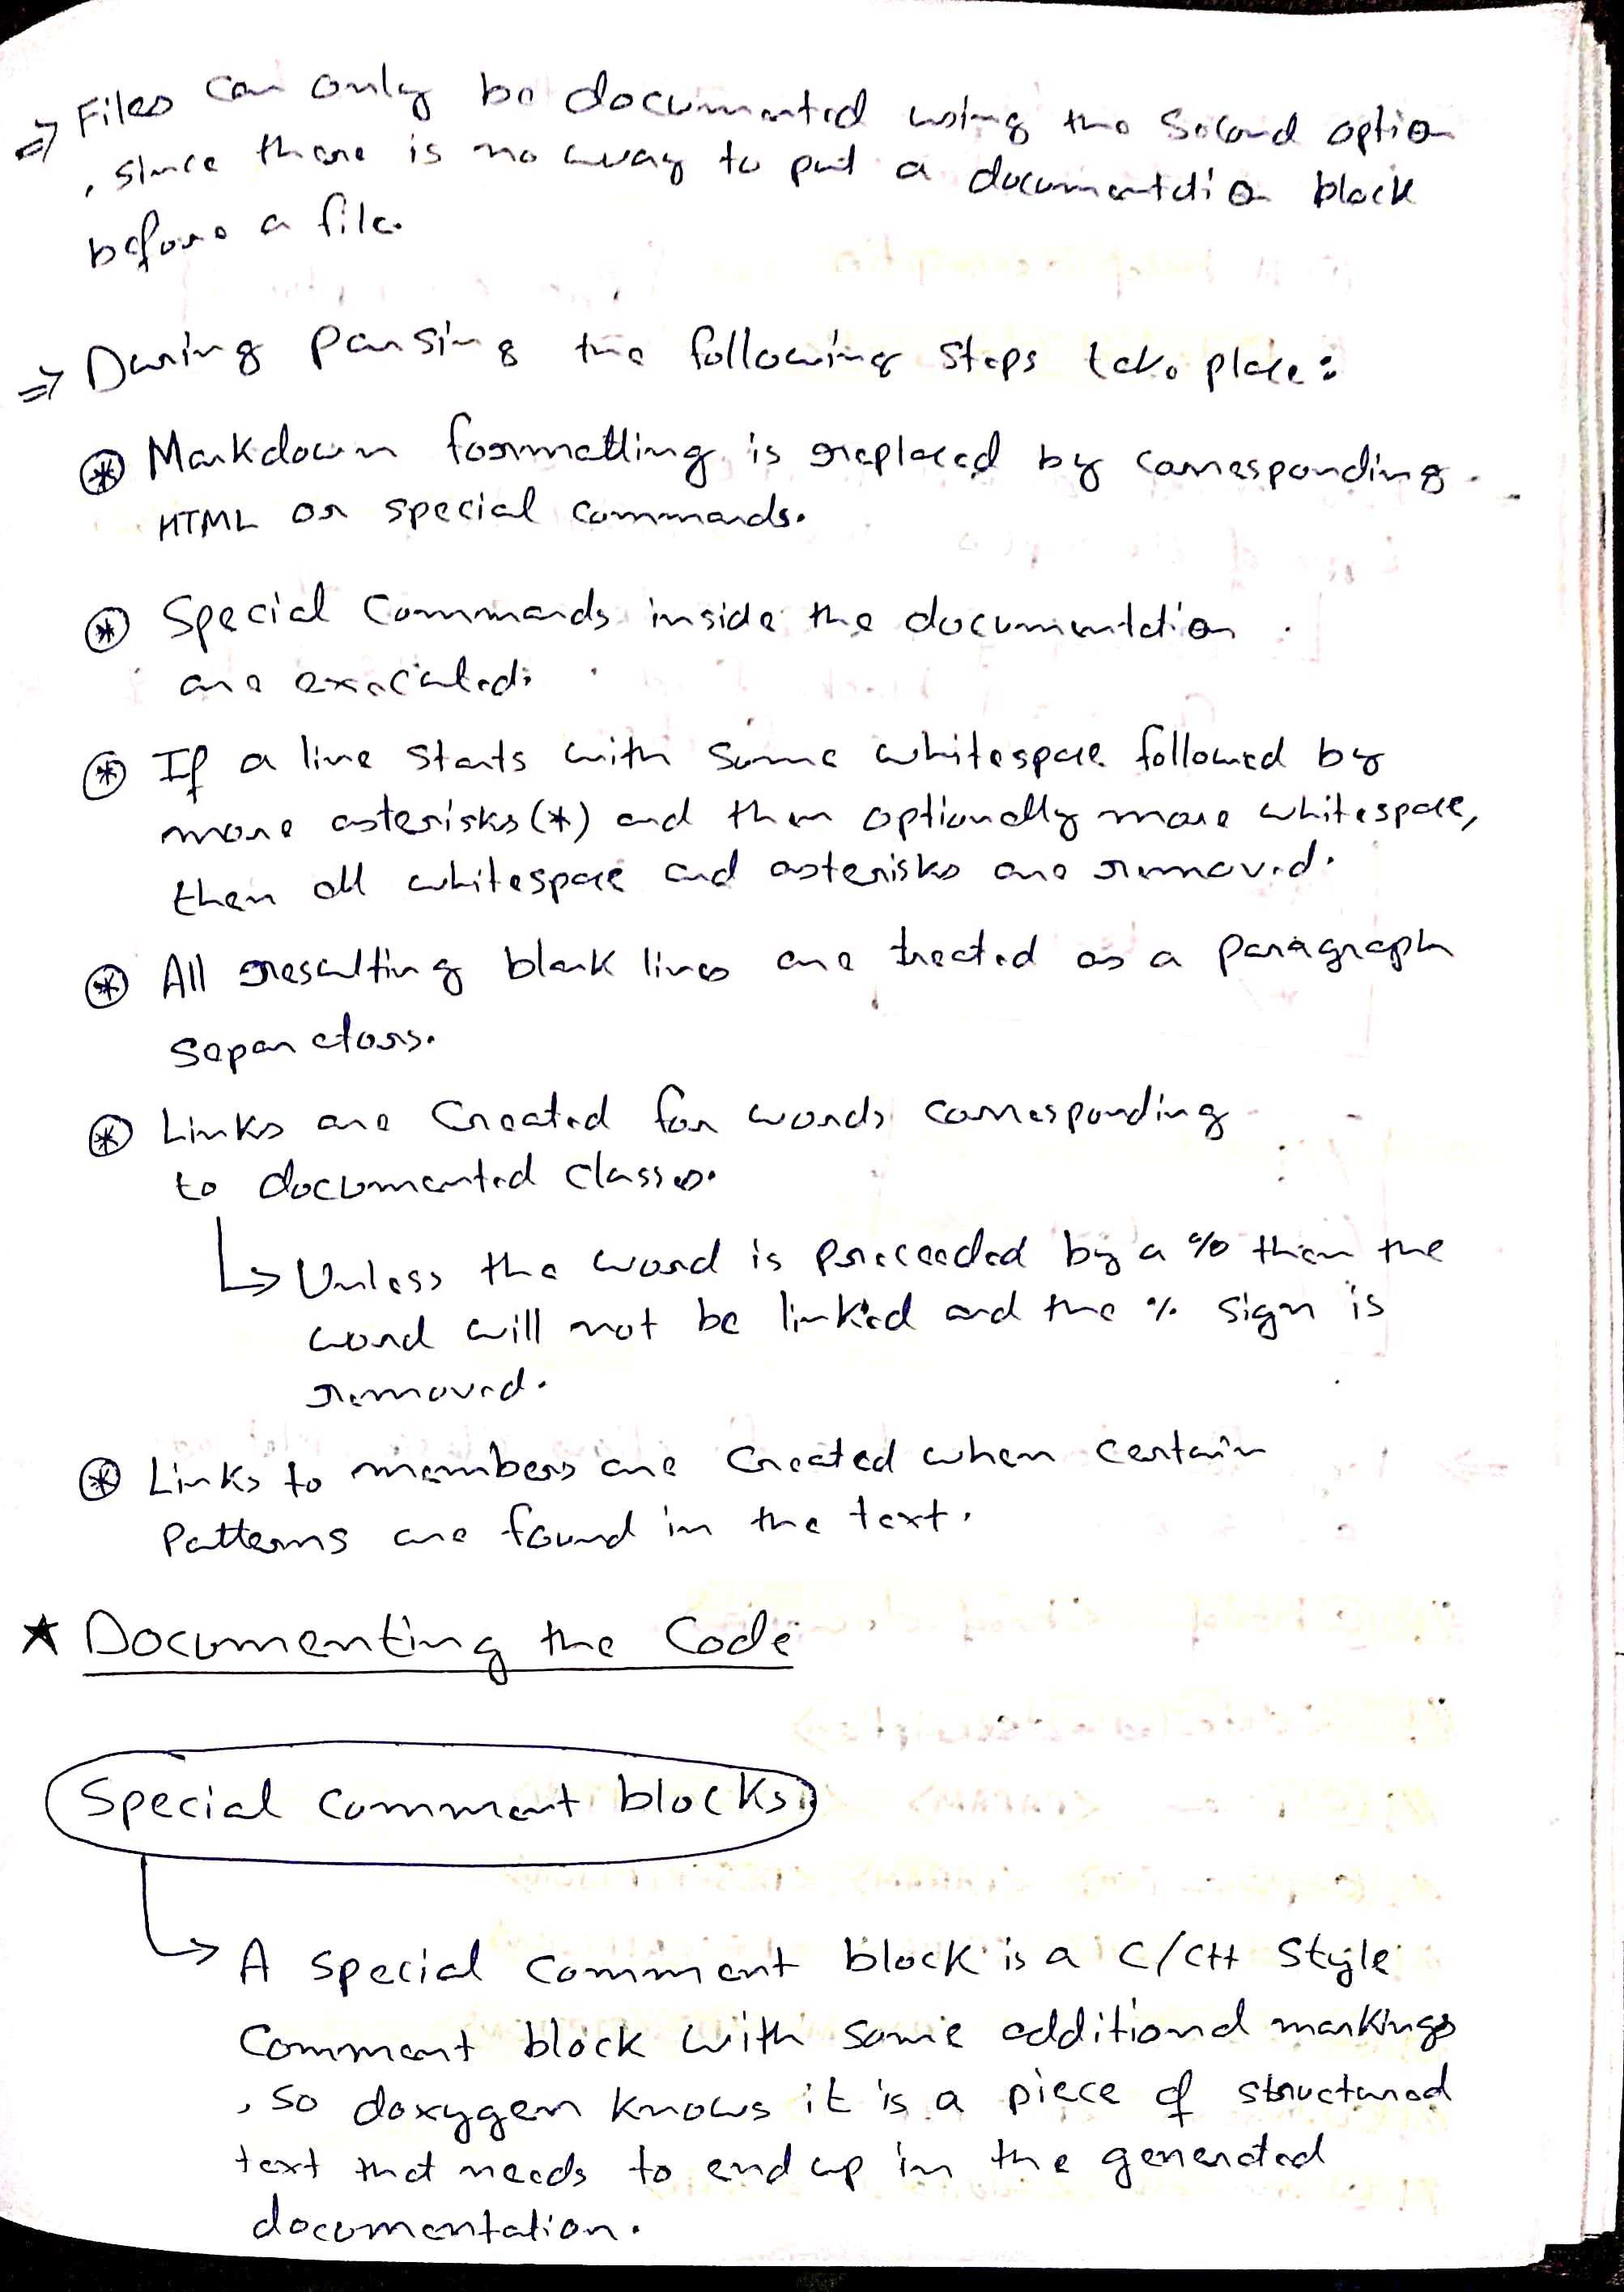 ⇒ Files can only be documented using the second option
, since there is no way to put a documentation block
before a file.
⇒ During parsing the following steps take place:
⊛ Markdown formatting is replaced by corresponding
HTML or special commands.
⊛ Special commands inside the documentation
are executed.
⊛ If a line starts with some whitespace followed by
more asterisks (*) and then optionally more whitespace,
then all whitespace and asterisks are removed.
⊛ All resulting blank lines are treated as a paragraph
separators.
⊛ Links are created for words corresponding
to documented classes.
↳ Unless the word is preceeded by a % then the
word will not be linked and the % sign is
removed.
⊛ Links to members are created when certain
patterns are found in the text.
★ Documenting the Code
Special comment blocks
↳ A special comment block is a C/C++ style
comment block with some additional markings
, so doxygen knows it is a piece of structured
text that needs to end up in the generated
documentation.